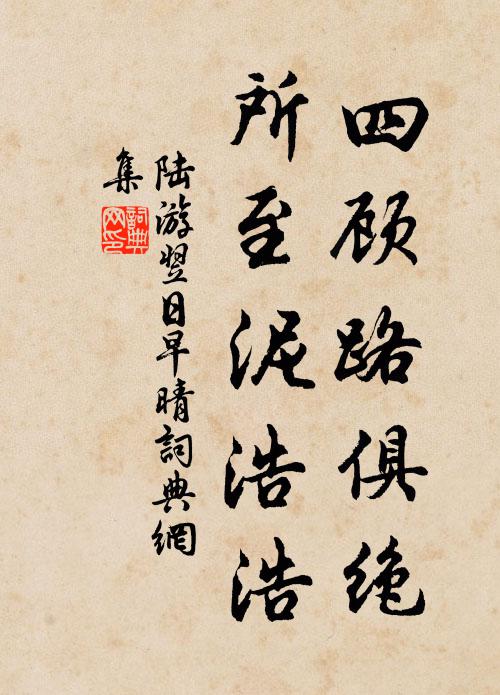 四顾路俱绝
所至泥浩浩
陆游翌日早晴詞典網
集
詞典
网印